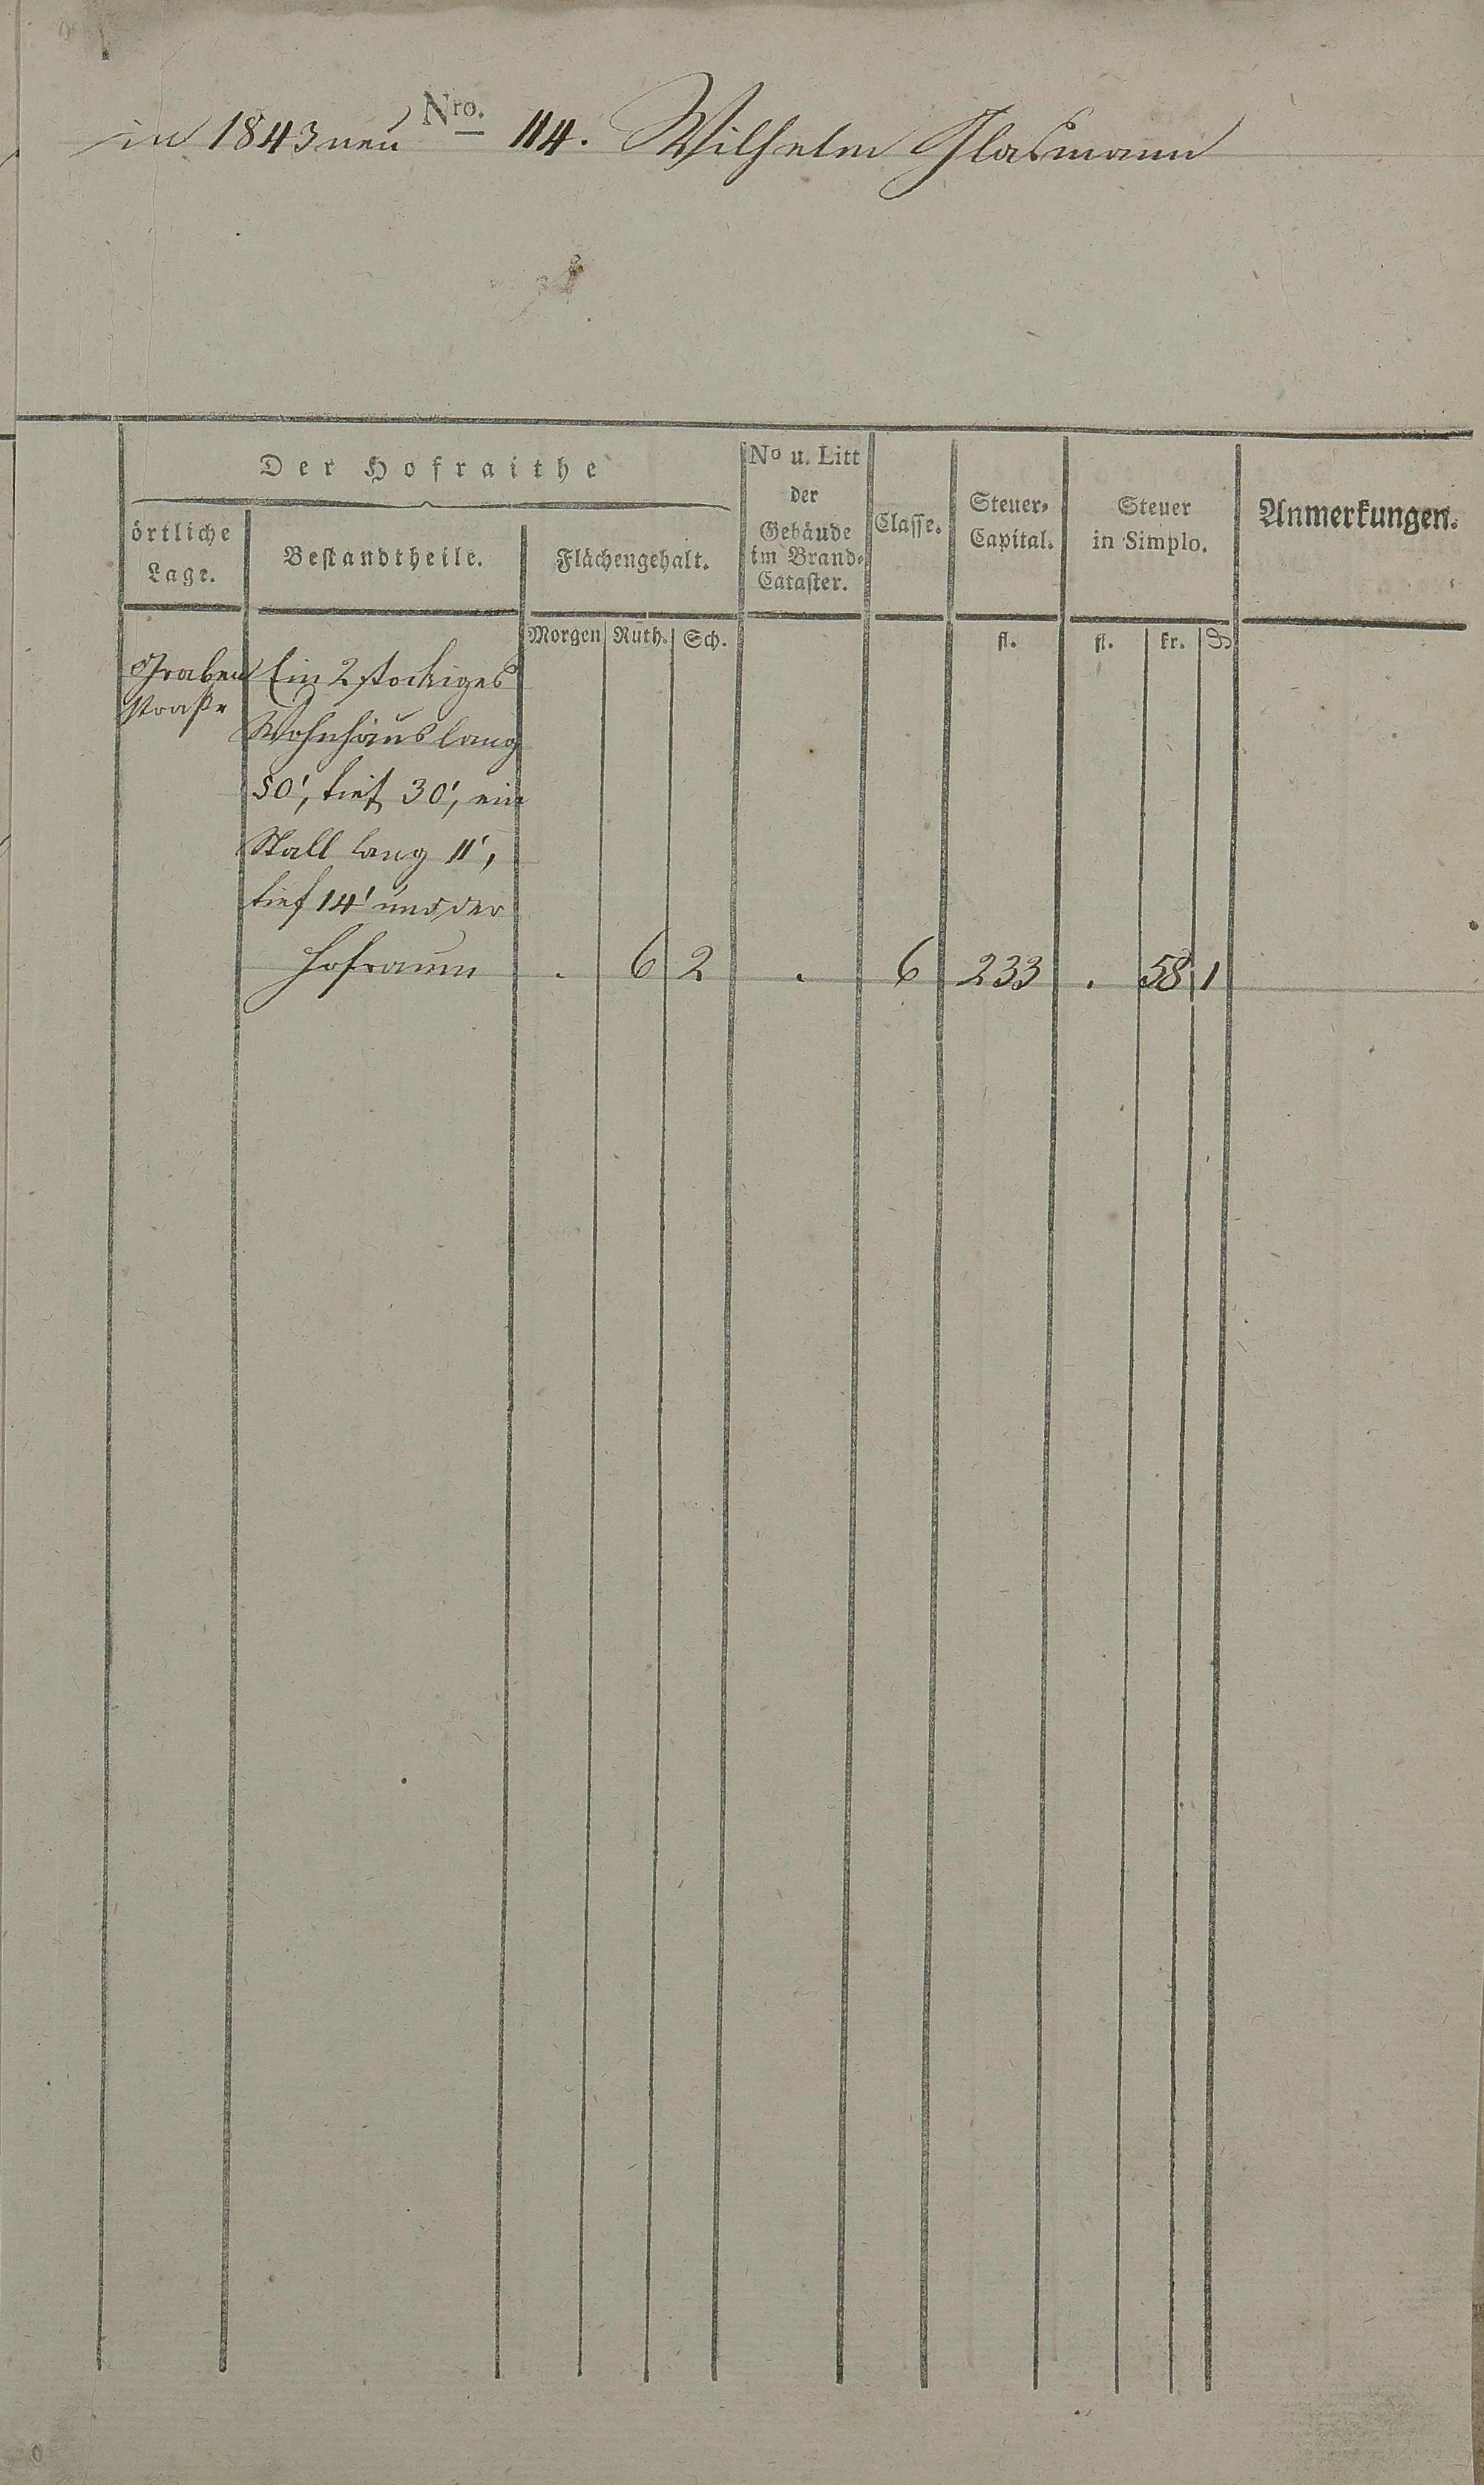 in 1843 neu Nro. 114. Wilhelm Glasmann
Der Hofraithe
örtliche
Lage.
Bestandtheile.
Flächengehalt.
No u. Litt
der
Gebäude
im Brand-
Cataster.
Classe.
Steuer-
Capital.
Steuer
in Simplo.
Anmerkungen.
Morgen Ruth. Sch. fl. fl. kr. ₰
Graben
straße
Ein 2 stockiges
Wohnhaus lang
50', tief 30', ein
Stall lang 11',
tief 14' und der
Hofraum . 6 2 . 6 233 . 58 1